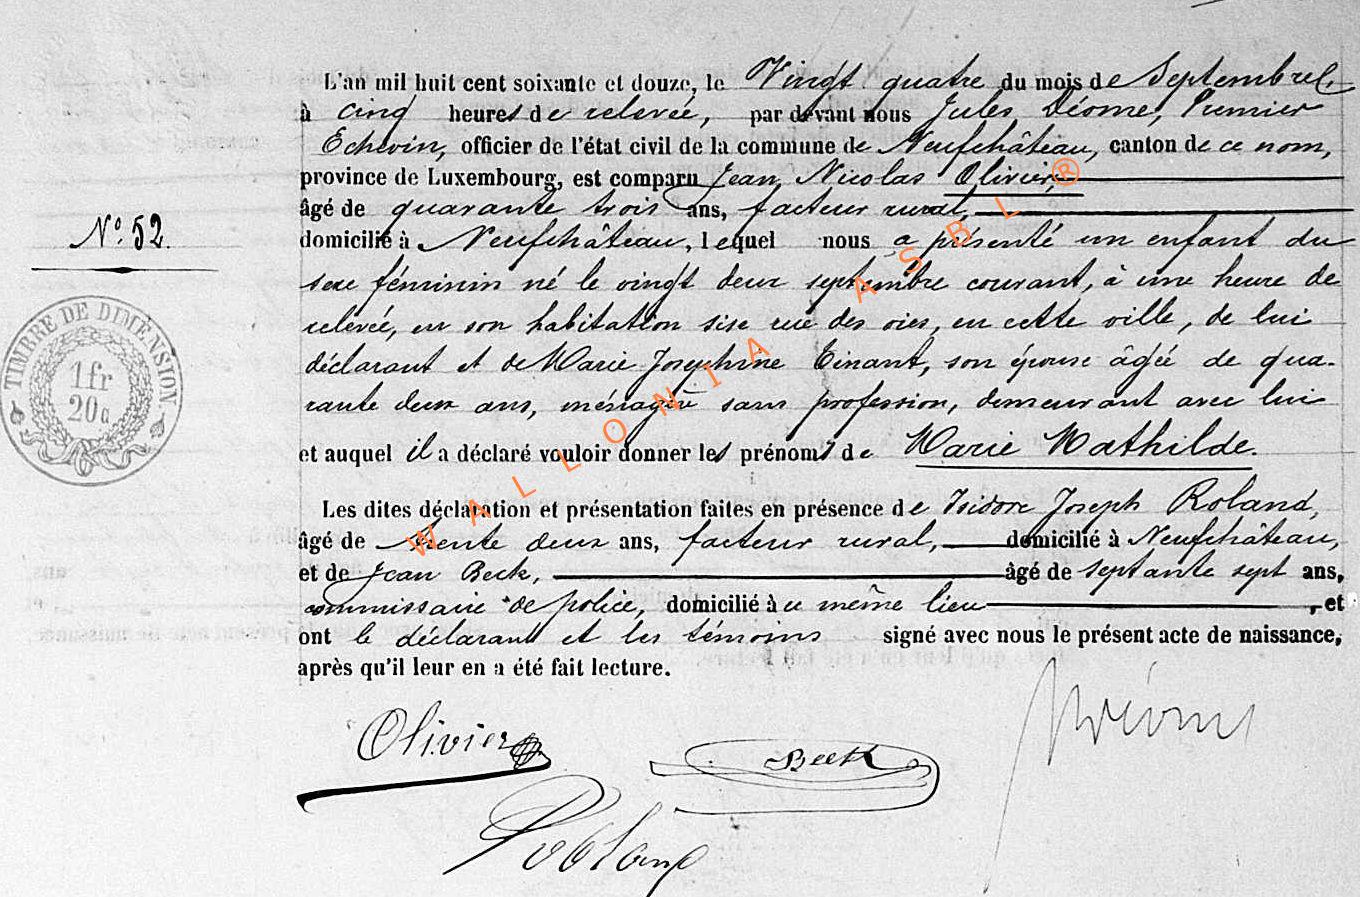 L'an mil huit cent soixante et douze, le Vingt quatre du mois de Septembre,
à cinq heures de relevée, par devant nous Jules Déome, Premier
Echevin, officier de l'état civil de la commune de Neufchâteau, canton de ce nom,
province de Luxembourg, est comparu Jean Nicolas Olivier,
âgé de quarante trois ans, facteur rural,
N.° 52.
domicilié à Neufchâteau, lequel nous a présenté un enfant du
sexe féminin né le vingt deux septembre courant, à une heure de
relevée, en son habitation sise rue des oies, en cette ville, de lui
déclarant et de Marie Josephine Tinant, son épouse âgée de qua-
rante deux ans, ménagère sans profession, demeurant avec lui
et auquel il a déclaré vouloir donner les prénoms de Marie Mathilde.
TIMBRE DE DIMENSION.
1fr
20a
Les dites déclaration et présentation faites en présence de Isidore Joseph Roland,
âgé de trente deux ans, facteur rural, domicilié à Neufchâteau,
et de Jean Beck, âgé de septante sept ans,
commissaire de police, domicilié à ce même lieu, et
ont le déclarant et les témoins signé avec nous le présent acte de naissance,
après qu'il leur en a été fait lecture.
Olivier
Beck
JDéome
Roland
WALLONIA ASBL ®